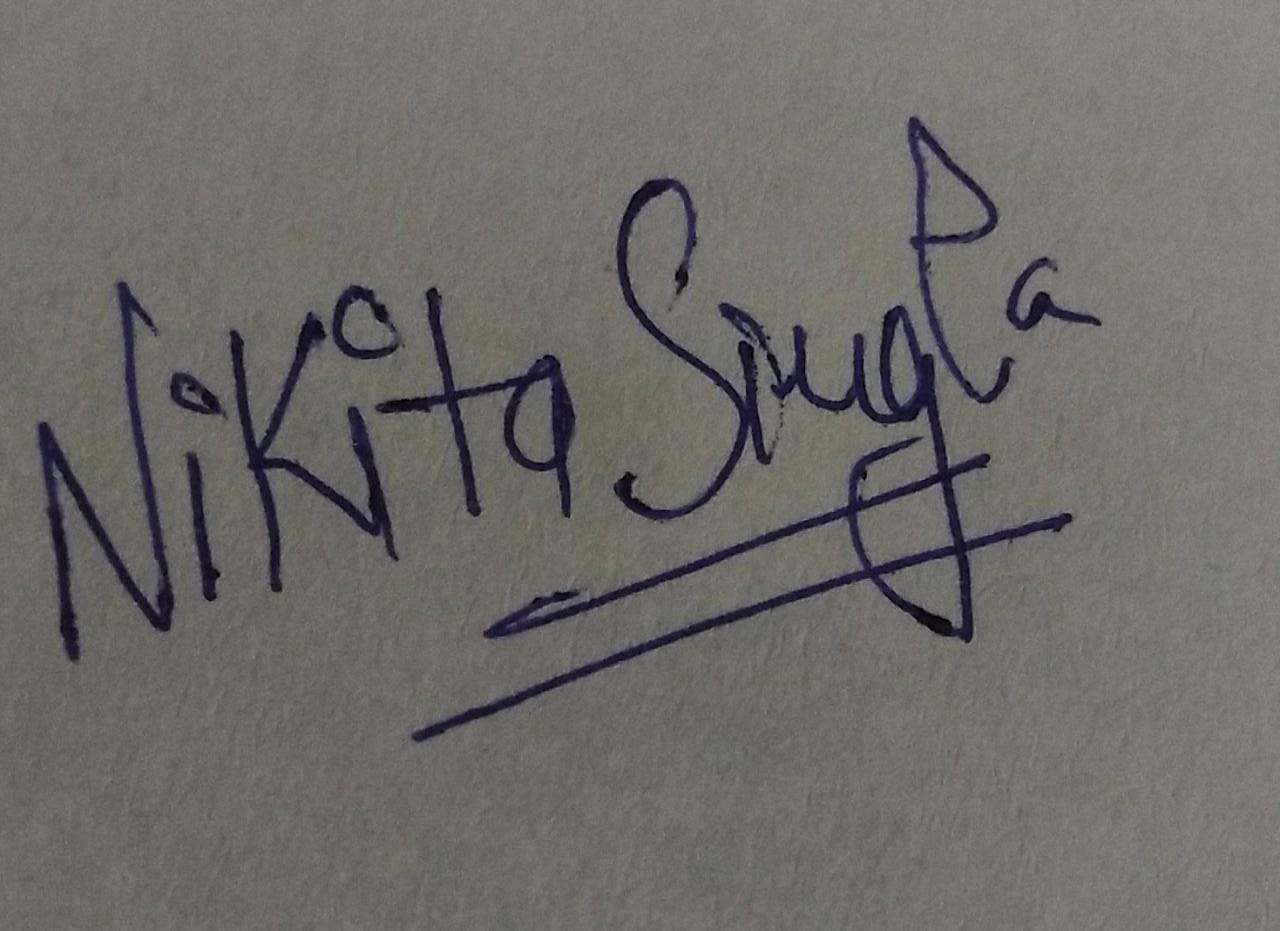 Nikita Singla